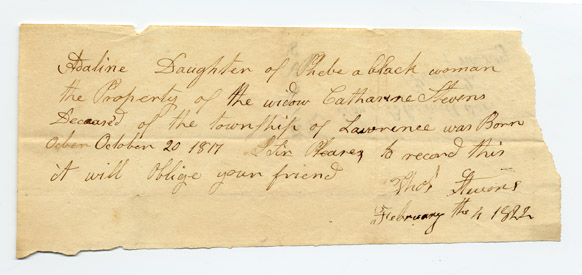 Adaline Daughter of Phebe a black woman
the Property of the widow Catharine Stevens
Deceased of the township of Lawrence was Born
October 20 1817 Sir Please to record this
it will Oblige your friend
Thos Stevens
February the 4 1822